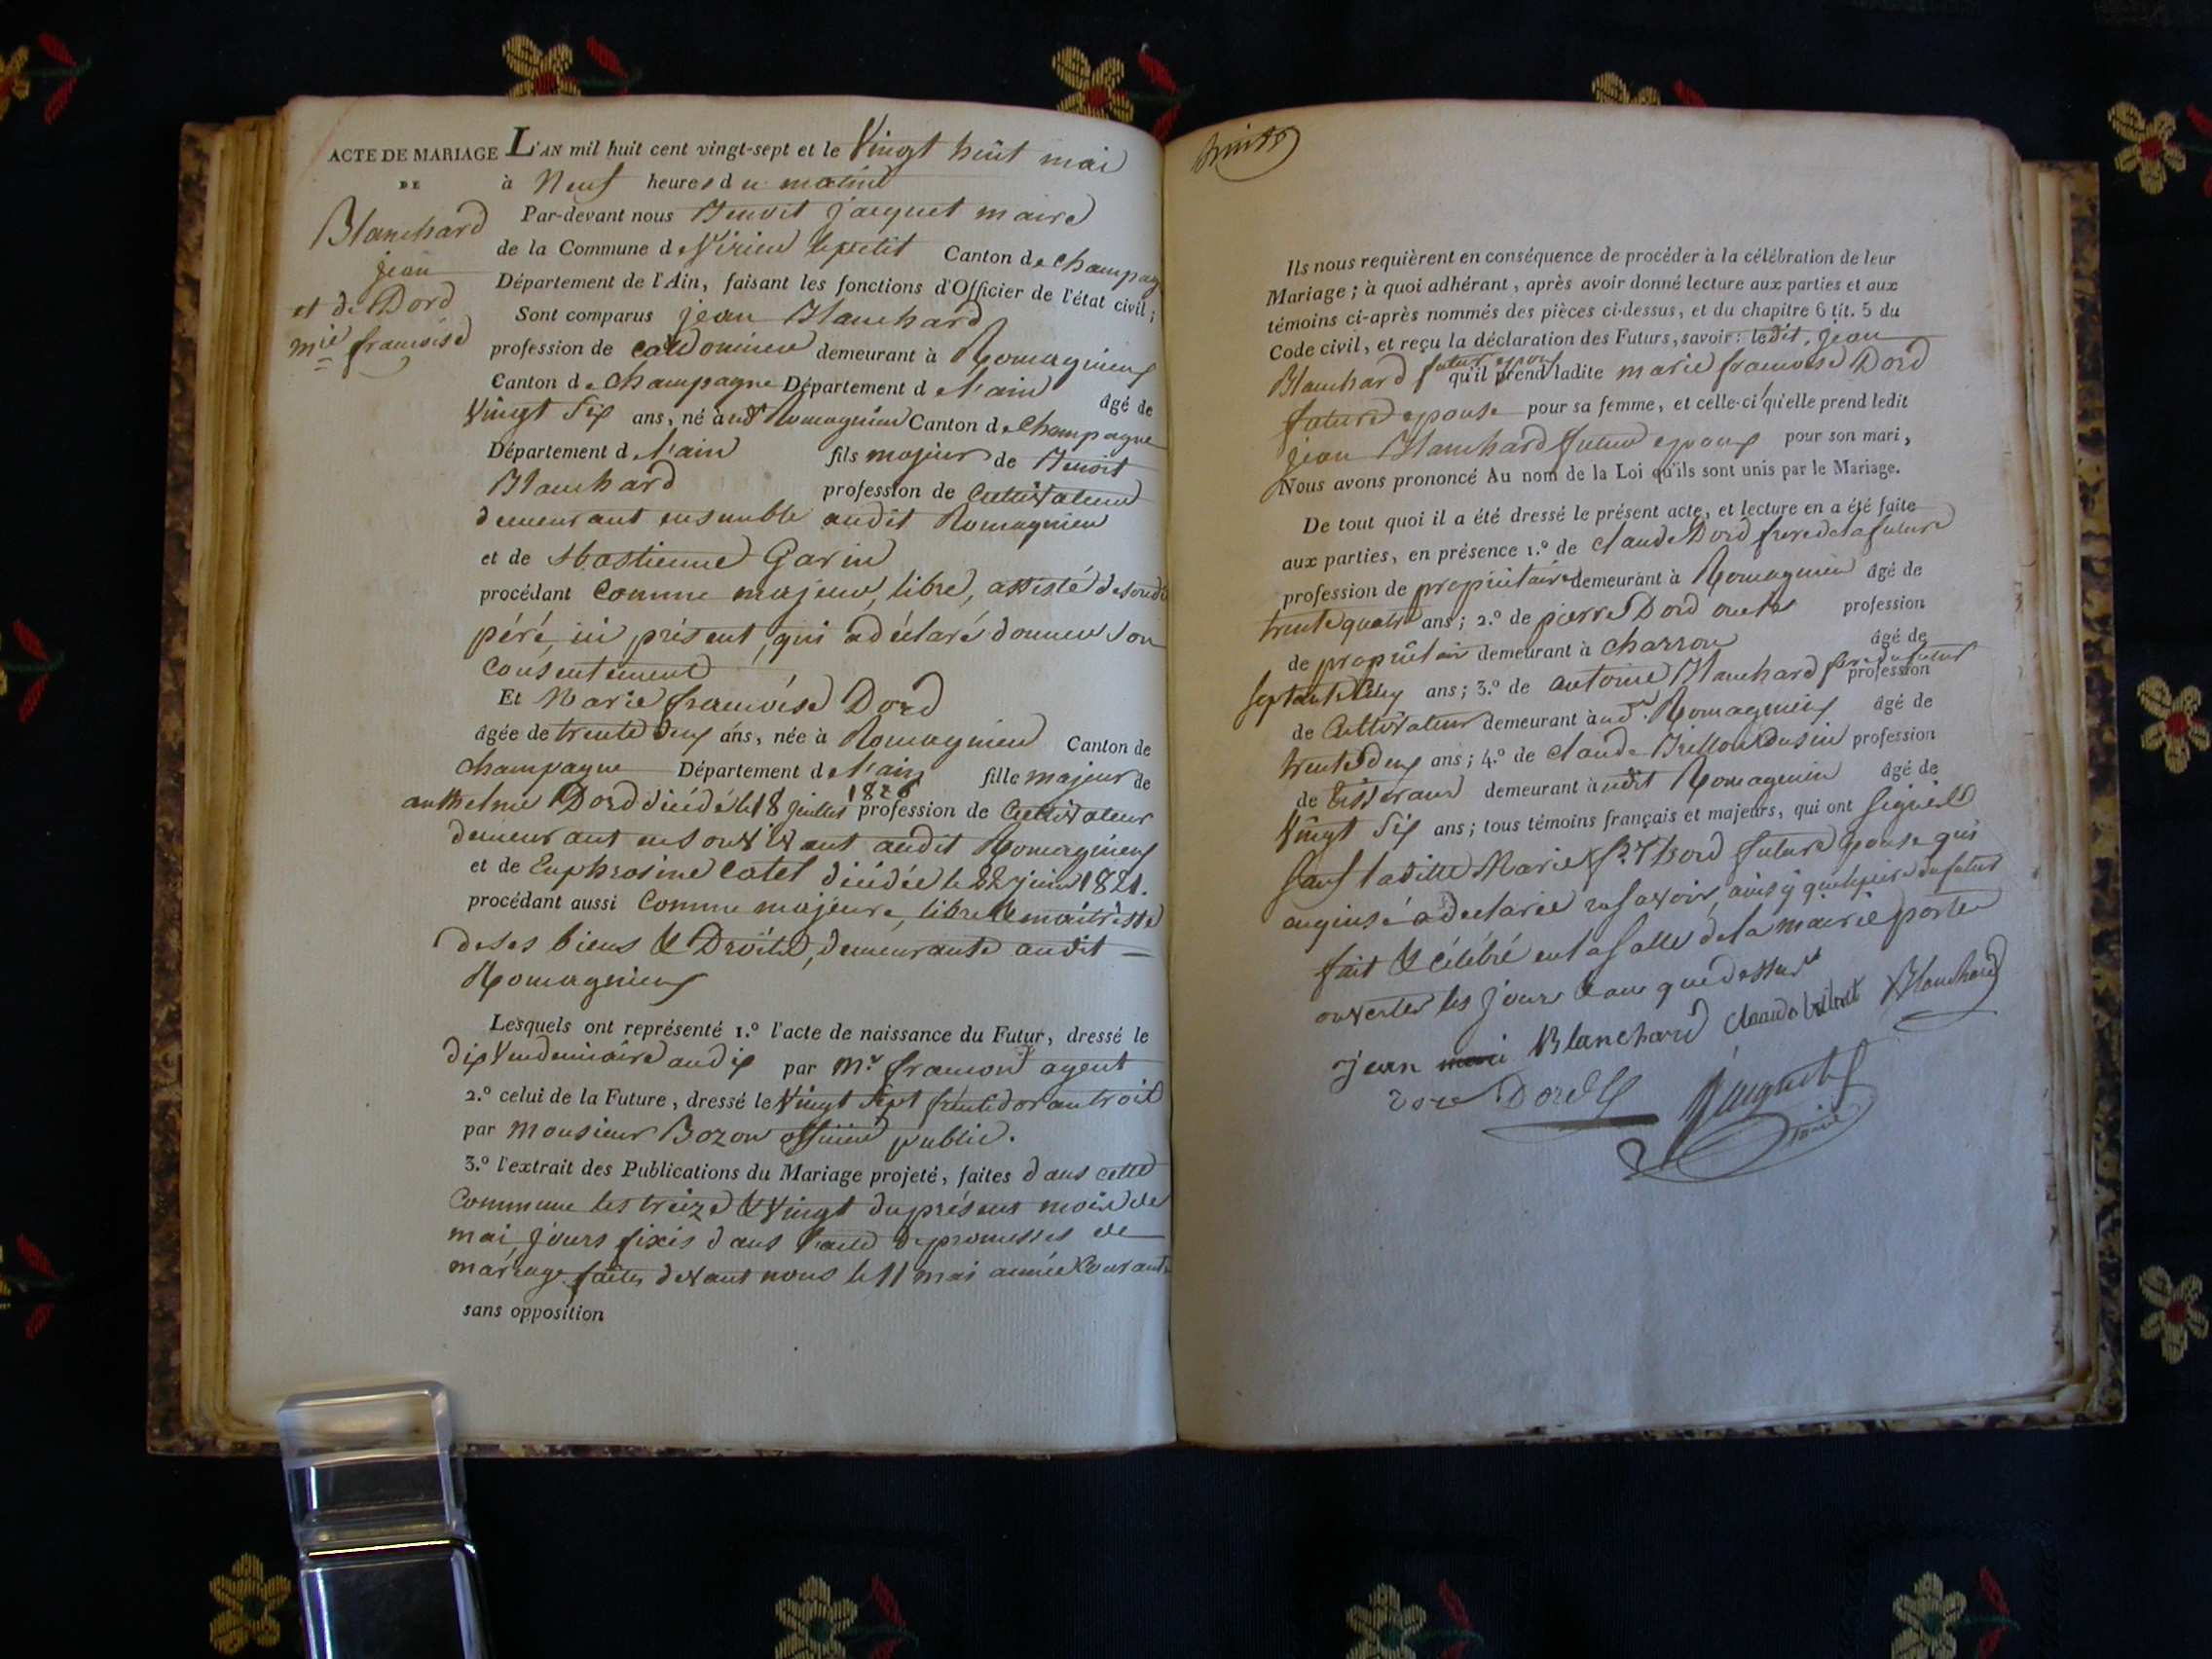 ACTE DE MARIAGE
DE
Blanchard
jean
et de Dord
mie francoise
L'AN mil huit cent vingt-sept et le Vingt huit mai
à Neuf heures du matin
Par-devant nous Benoit jacquet maire
de la Commune de Virieu le petit Canton de Champag
Département de l'Ain, faisant les fonctions d'Officier de l'état civil;
Sont comparus jean Blanchard
profession de demeurant à Romagnieux
Canton de Champagne Département de l'ain âgé de
Vingt Six ans, né à udt Romagnieu Canton de Champagne
Département de l'ain fils majeur de Benoit
Blanchard profession de Cultivateur
demeurant ensemble audit Romagnieu
et de sbastienne Garin
procédant Comme majeur, libre, assisté de sondt
péré, ici présent, qui a déclaré donner son
Consentement
Et Marie francoise Dord
âgée de trente deux ans, née à Romagnieu Canton de
Champagne Département de l'ain fille majeur de
anthelme Dord décédé le 18 juillet 1826 profession de Cultivateur
demeurant en son vivant audit Romagnieux
et de Euphrosine Catel décédée le 22 juin 1821.
procédant aussi Comme majeure, libre & maitresse
de ses biens & Droits, demeurante audit
Romagnieux
Lesquels ont représenté 1.º l'acte de naissance du Futur, dressé le
dix Vendemiaire an dix par Mr. framond agent
2.º celui de la Future, dressé le Vingt Sept fructidor an trois
par Monsieur Bozon officier public.
3.º l'extrait des Publications du Mariage projeté, faites dans cette
Commune les treize & Vingt du présent mois de
mai, jours fixés dans l'acte de promesses de
mariage faites devant nous le 11 mai année Courante
sans opposition
Ils nous requièrent en conséquence de procéder à la célébration de leur
Mariage; à quoi adhérant, après avoir donné lecture aux parties et aux
témoins ci-après nommés des pièces ci-dessus, et du chapitre 6 tit. 5 du
Code civil, et reçu la déclaration des Futurs, savoir: ledit, jean
Blanchard futur epoux qu'il prend ladite marie francoise Dord
future epouse pour sa femme, et celle-ci qu'elle prend ledit
jean Blanchard futur epoux pour son mari,
Nous avons prononcé Au nom de la Loi qu'ils sont unis par le Mariage.
De tout quoi il a été dressé le présent acte, et lecture en a été faite
aux parties, en présence 1.º de claude Dord frere de la future
profession de propriétaire demeurant à Romagnieu âgé de
trente quatre ans; 2.º de pierre Dord oncle profession
de propriétair demeurant à charron âgé de
septante ans; 3.º de antoine Blanchard frere du futur profession
de Cultivateur demeurant à udt. Romagnieux âgé de
trente deux ans; 4.º de claude Brillon profession
de tisserand demeurant à udit Romagnieu âgé de
Vingt Six ans; tous témoins français et majeurs, qui ont Signés
Sauf ladite Marie fse Dord future epouse qui
enquise a declaré ne savoir, ainsy que le pere du futur
fait & célébré en la Salle de la mairie portes
ouvertes les jours & an que dessus
jean Blanchard claude brillont Blanchard
Dord Jacquet
maire